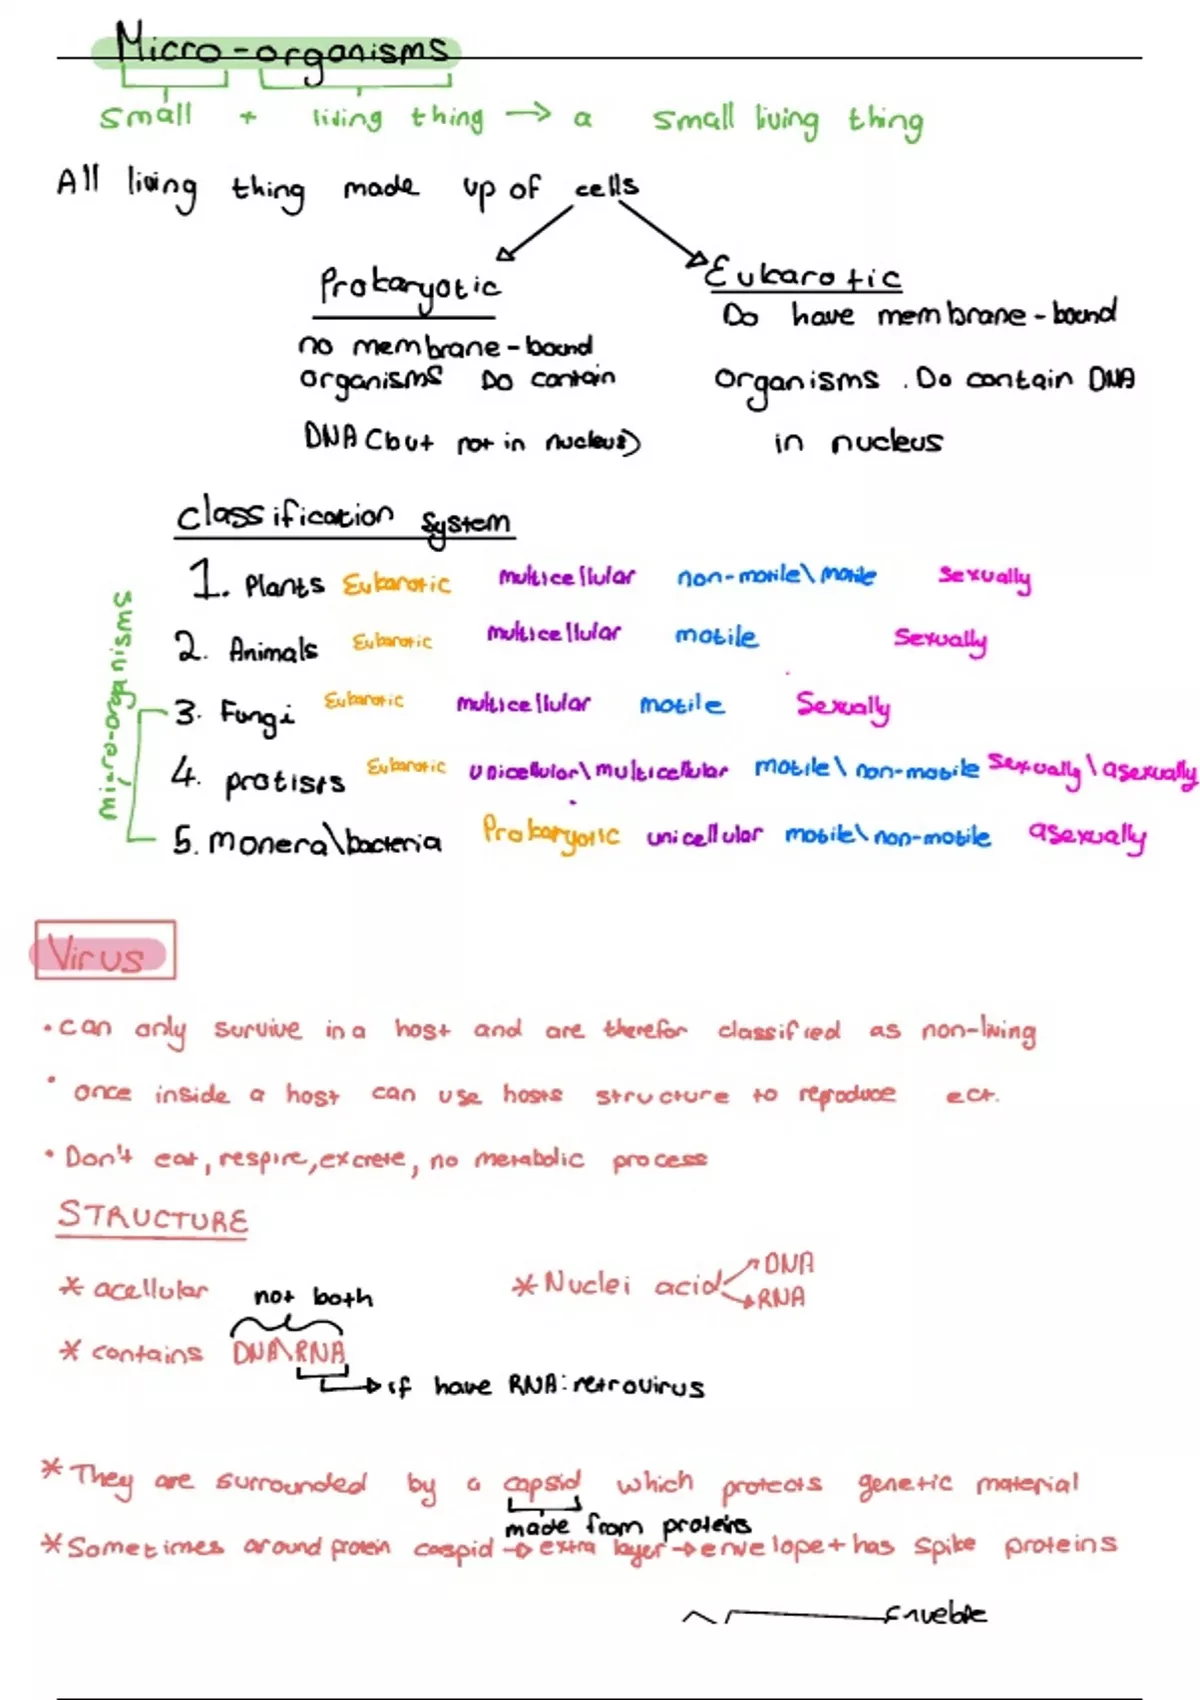 Micro-organisms
small + living thing → a small living thing
All living thing made up of cells
Prokaryotic
Eukarotic
no membrane-bound
organisms Do contain
DNA (but not in nucleus)
Do have membrane-bound
organisms. Do contain DNA
in nucleus
classification system
micro-organisms
1. Plants Eukarotic multicellular non-motile\motile sexually
2. Animals Eukarotic multicellular motile sexually
3. Fungi Eukarotic multicellular motile Sexually
4. protists Eukarotic unicellular\multicellular motile\non-motile sexually\asexually
5. monera\bacteria Prokaryotic unicellular motile\non-motile asexually
Virus
• can only survive in a host and are therefor classified as non-living
• once inside a host can use hosts structure to reproduce ect.
• Don't eat, respire, excrete, no metabolic process
STRUCTURE
* acellular
* Nuclei acid
DNA
RNA
not both
* contains DNA\RNA
if have RNA: retrovirus
* They are surrounded by a capsid which protects genetic material
made from proteins
* Sometimes around protein caspid → extra layer → envelope + has spike proteins